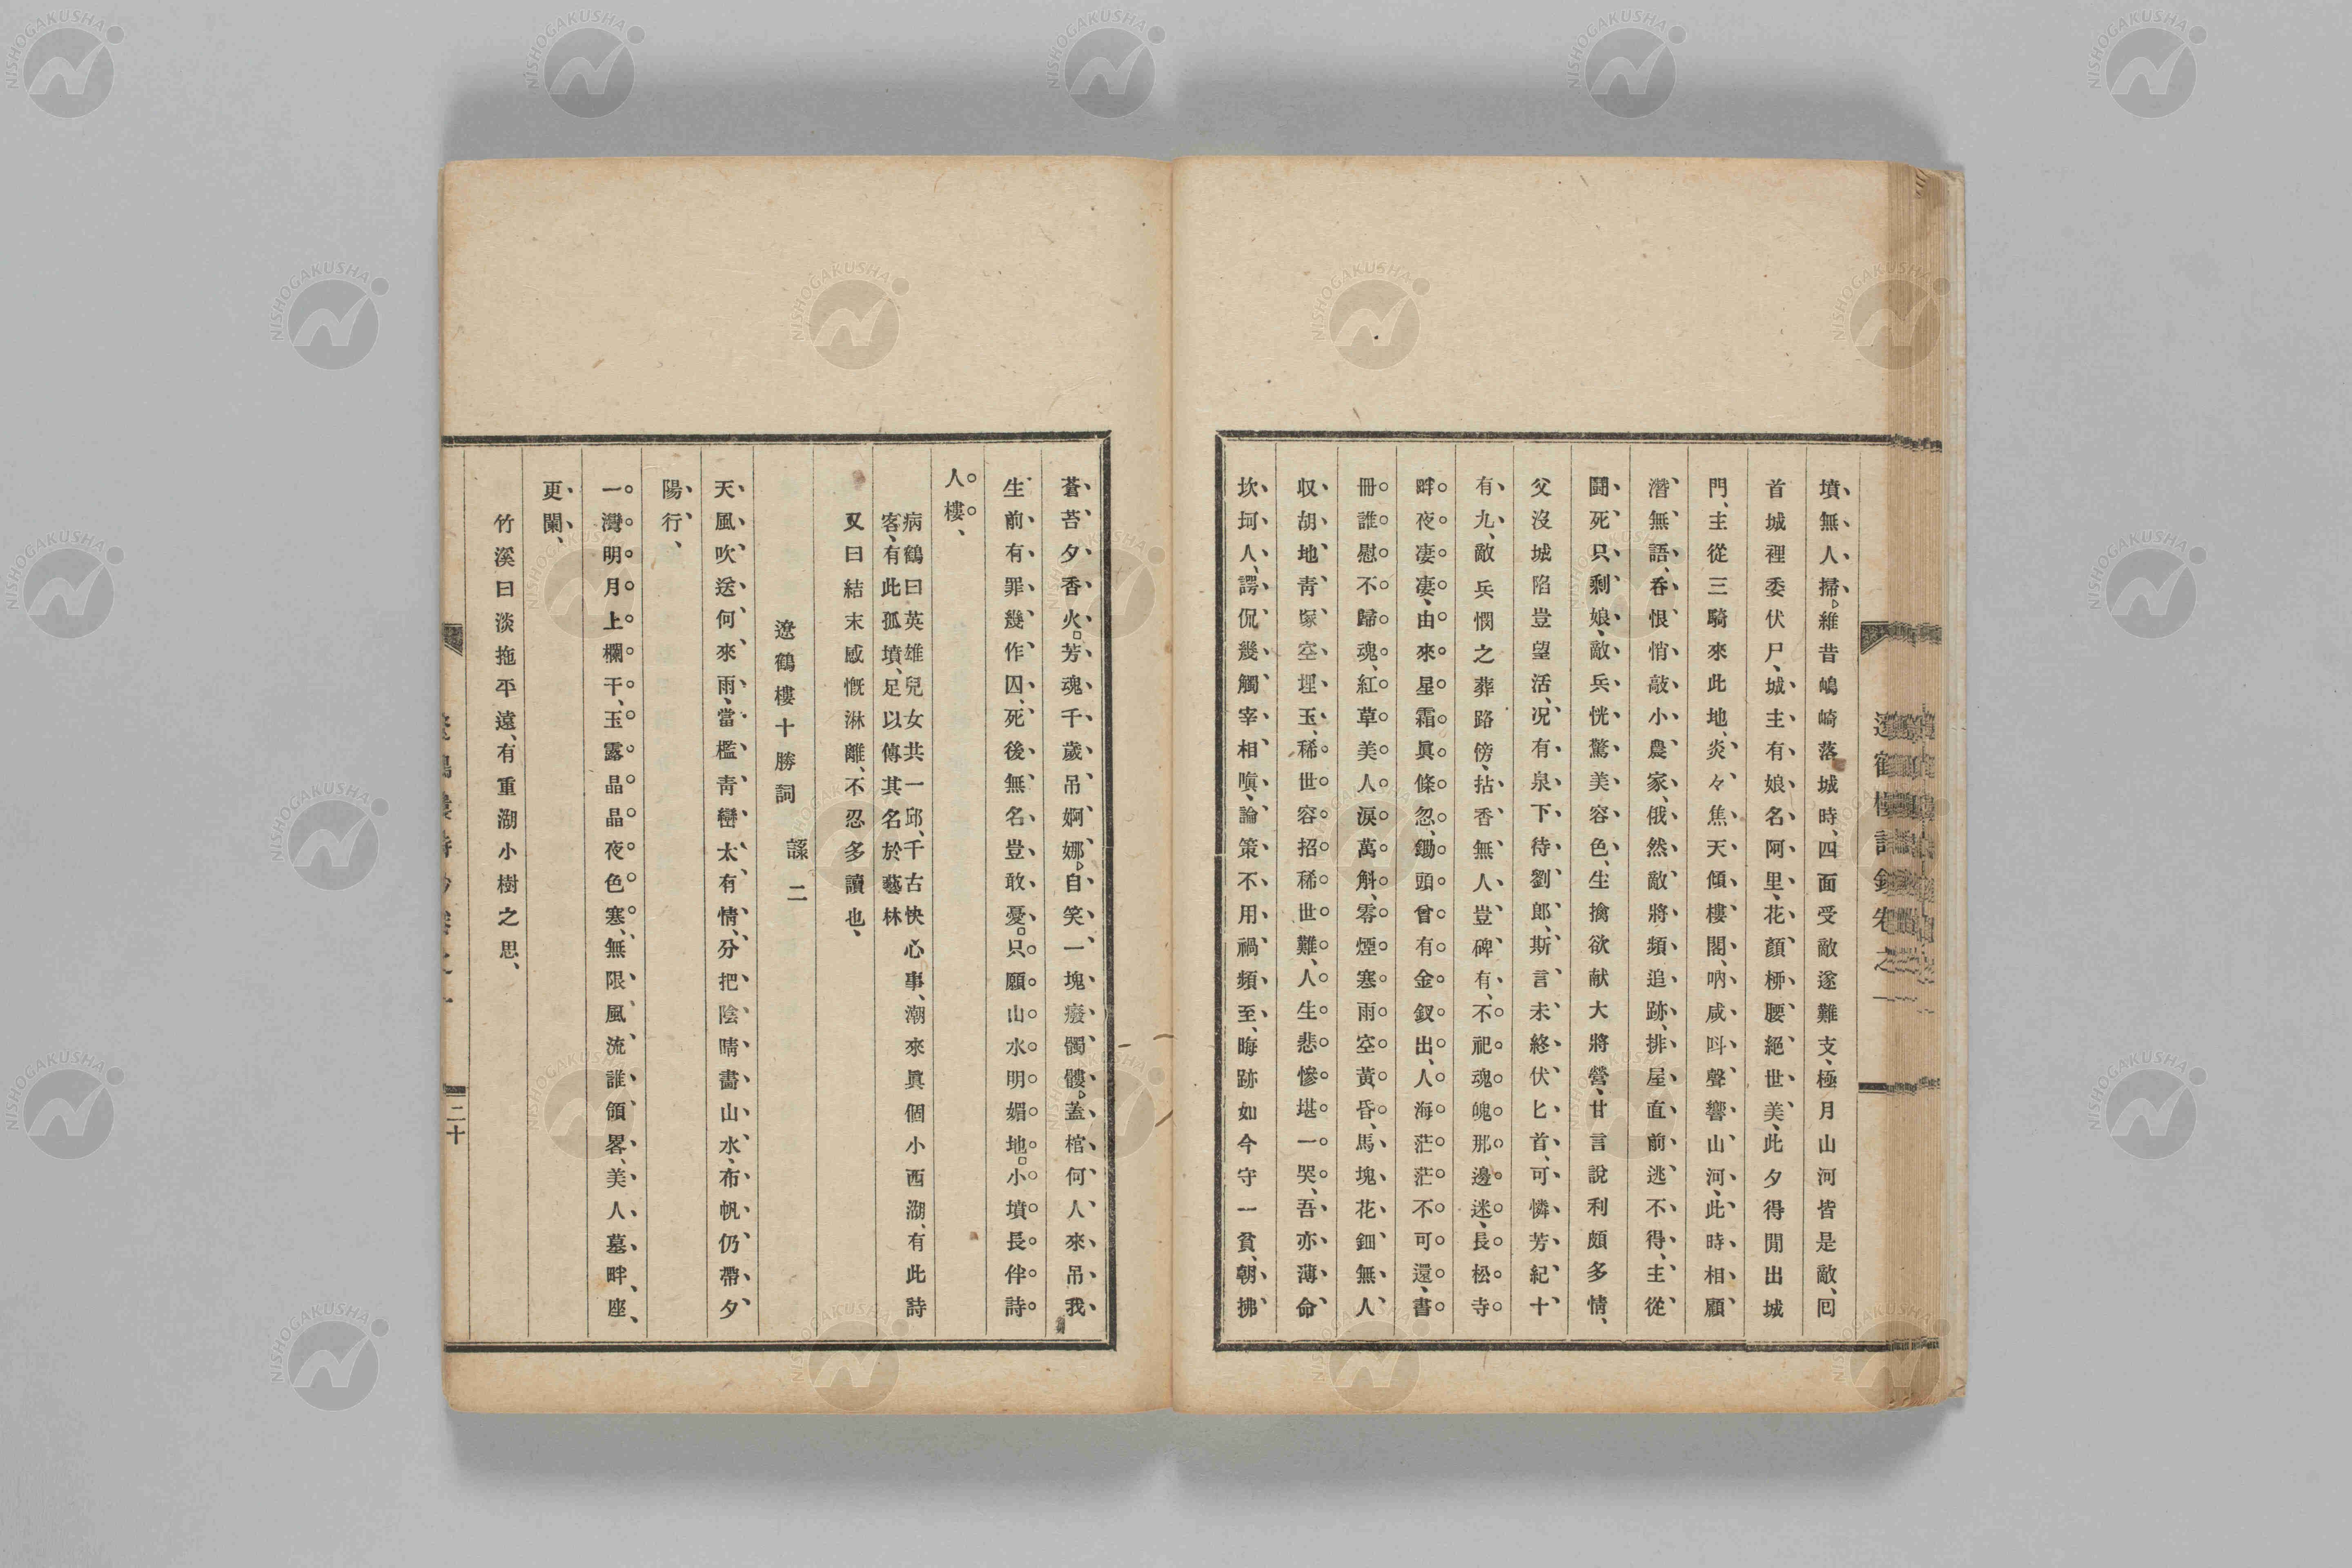 墳無人掃維昔嶋崎落城時、四面受敵遂難支、極月山河皆是敵、囘
首城裡委伏尸、城主有娘名阿里、花顏柳腰絕世美、此夕得閒出城
門、主從三騎來此地、炎々焦天傾樓閣、吶咸呌聲響山河、此時相顧
潛無語、呑恨悄敲小農家、俄然敵將頻追跡、排屋直前逃不得、主從
鬪死只剩娘、敵兵恍驚美容色、生擒欲献大將營、甘言說利頗多情、
父沒城陷豈望活、况有泉下待劉郎、斯言未終伏匕首、可憐芳紀十
有九、敵兵憫之葬路傍、拈香無人豈碑有、不祀魂魄那邊迷、長松寺
畔夜凄凄、由來星霜眞倏忽、鋤頭曾有金釵出、人海茫茫不可還、書
冊誰慰不歸魂、紅草美人淚萬斛、零煙寒雨空黃昏、馬塊花鈿無人
収、胡地靑塚空埋玉、稀世容招稀世難、人生悲慘堪一哭、吾亦薄命
坎坷人、諤侃幾觸宰相嗔、論策不用禍頻至、晦跡如今守一貧、朝拂
蒼苔夕香火、芳魂千歲吊婀娜、自笑一塊癈髑髏、蓋棺何人來吊我
生前有罪幾作囚、死後無名豈敢憂、只願山水明媚地、小墳長伴詩
人樓、
病鶴曰英雄兒女共一邱、千古快心事、潮來眞個小西湖、有此詩
客、有此孤墳、足以傳其名於藝林
又曰結末感慨淋離、不忍多讀也、
遼鶴樓十勝詞 錄二
天風吹送何來雨、當檻靑巒太有情、分把陰晴畵山水、布帆仍帶夕
陽行、
一灣明月上欄干、玉露晶晶夜色寒、無限風流誰領畧、美人墓畔座
更闌、
竹溪曰淡拖平遠、有重湖小樹之思、
二十